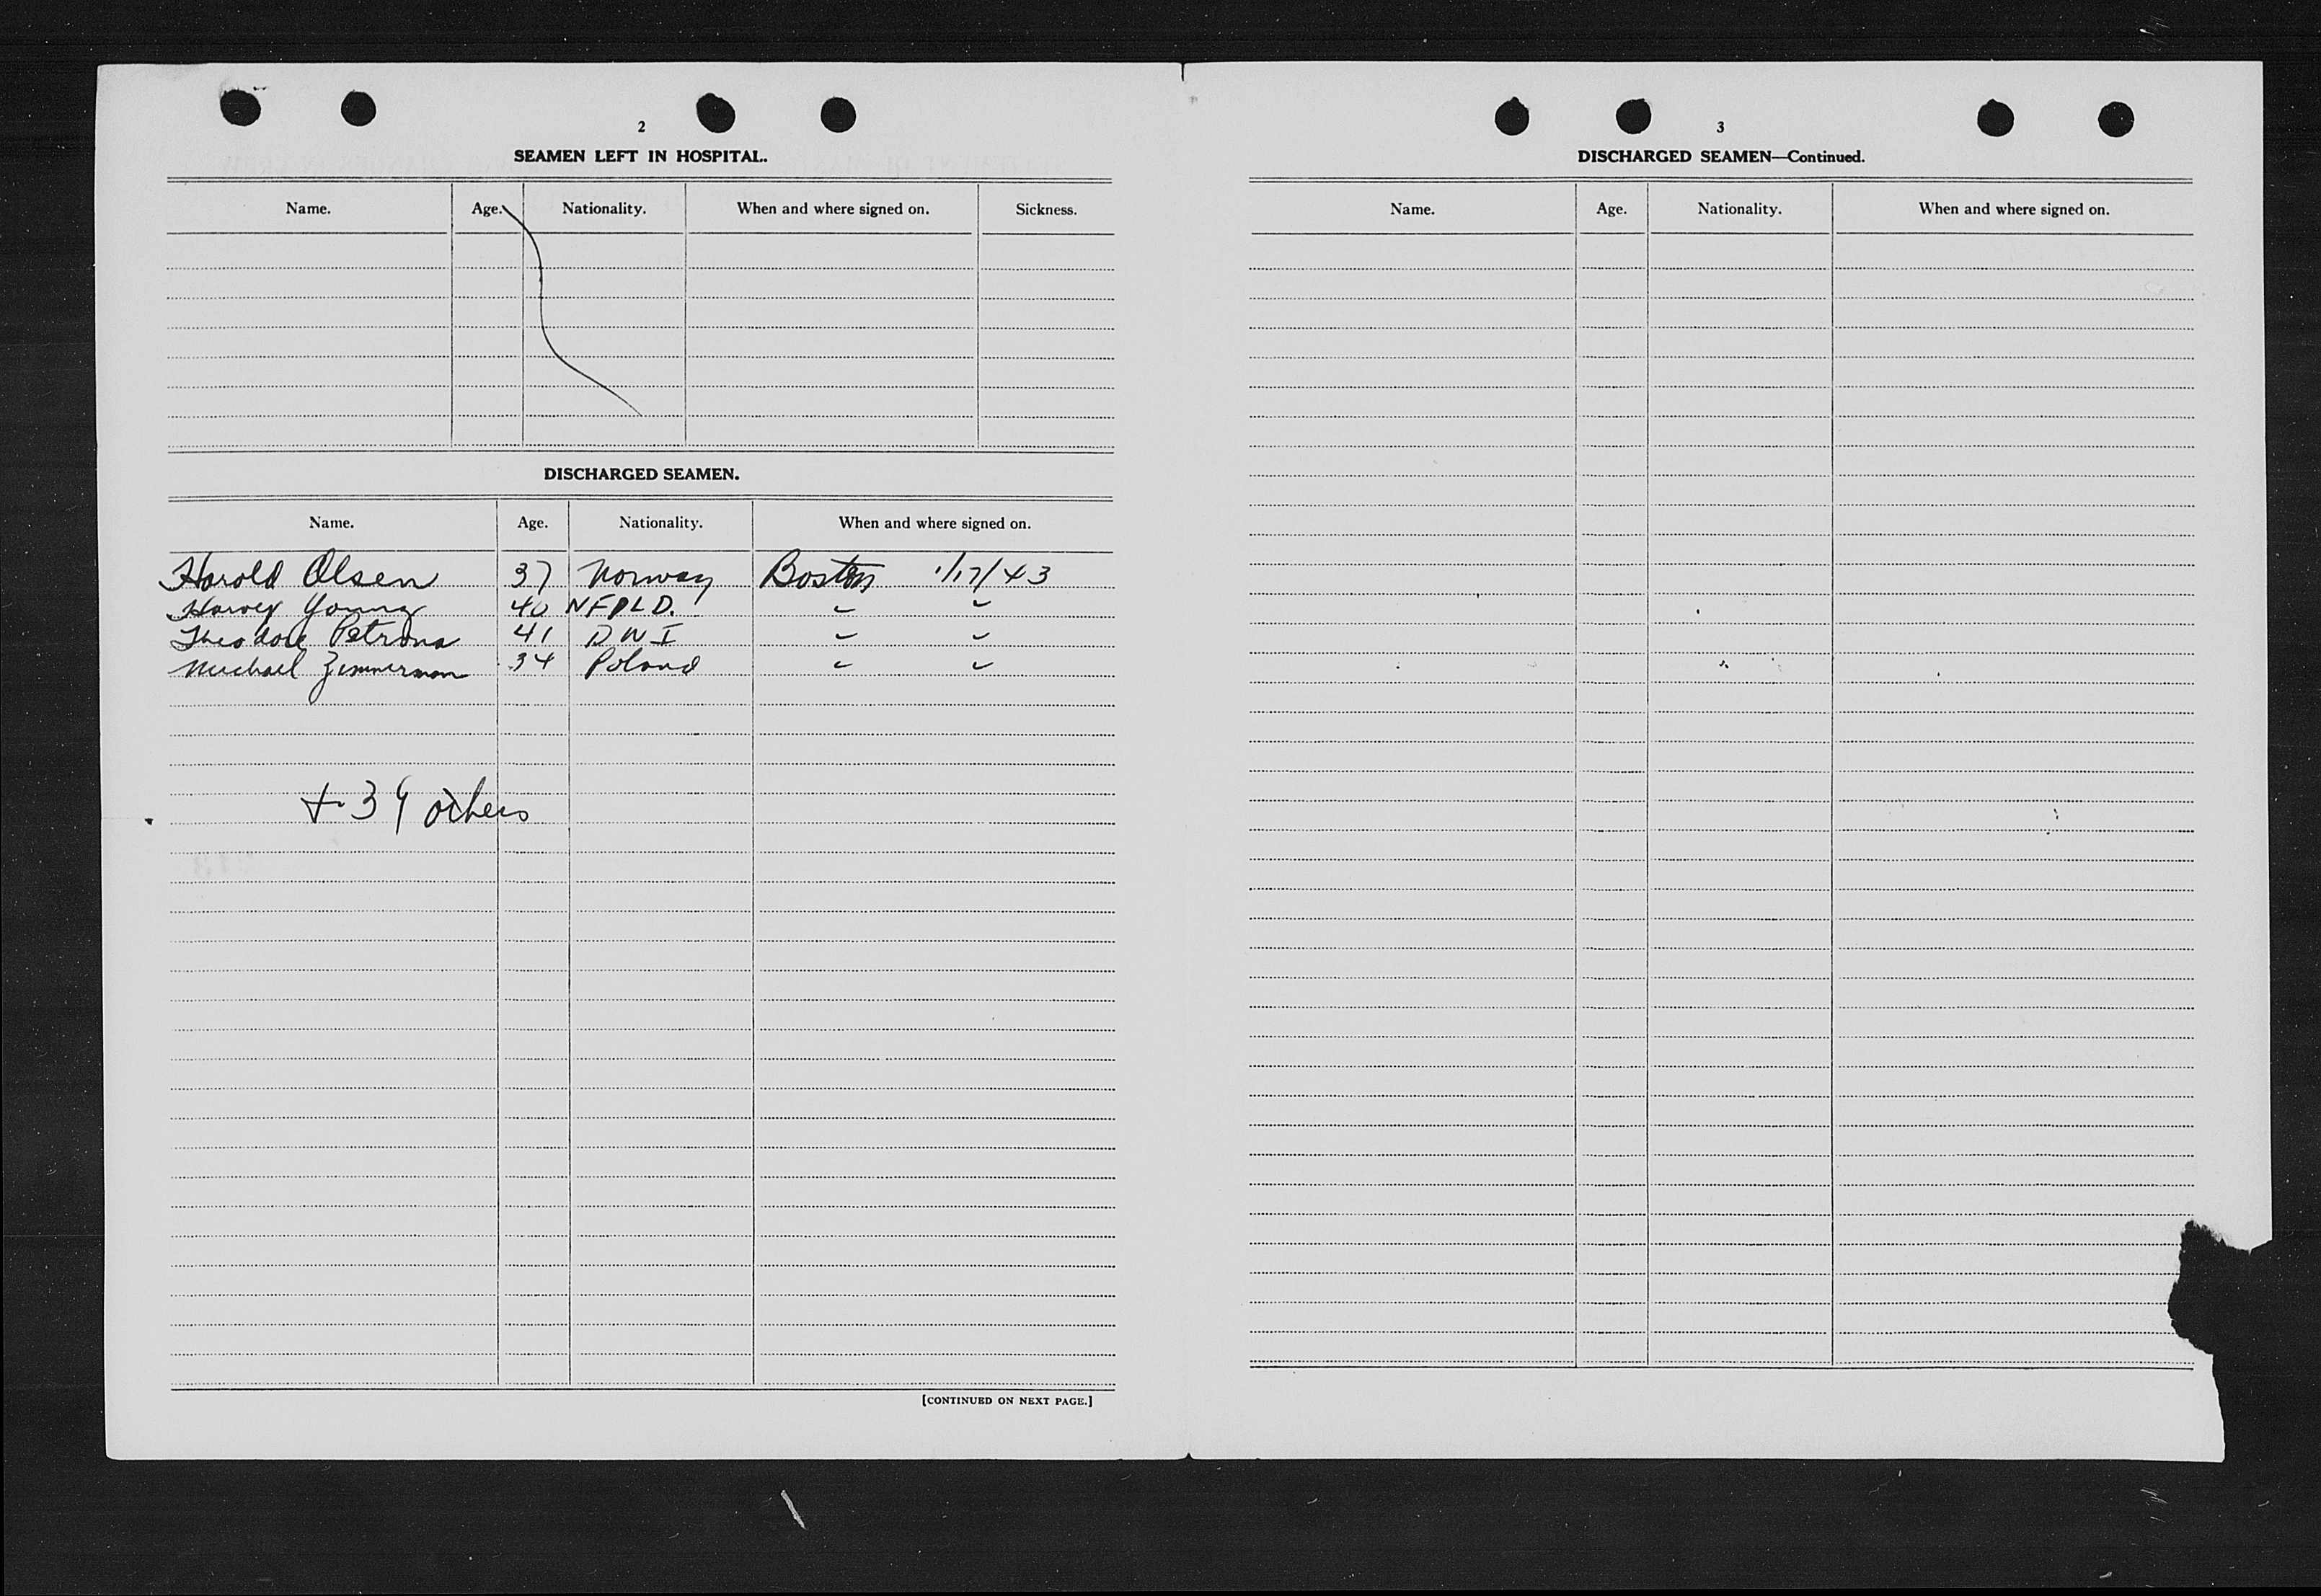 2
SEAMEN LEFT IN HOSPITAL.
Name. Age. Nationality. When and where signed on. Sickness.
DISCHARGED SEAMEN.
Name. Age. Nationality. When and where signed on.
Harold Olsen 37 Norway Boston 1/17/43
Harvey Young 40 NFDLD. " "
Theodore Petrona 41 DWI " "
Michael Zimmerman 34 Poland " "
+ 39 others
[CONTINUED ON NEXT PAGE.]
3
DISCHARGED SEAMEN—Continued.
Name. Age. Nationality. When and where signed on.